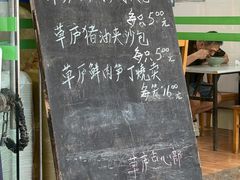 每只5.00元
草庐猪油夹沙包
每只5.00元
草庐鲜肉笋丁烧卖
每笼16.00元
草庐点心部